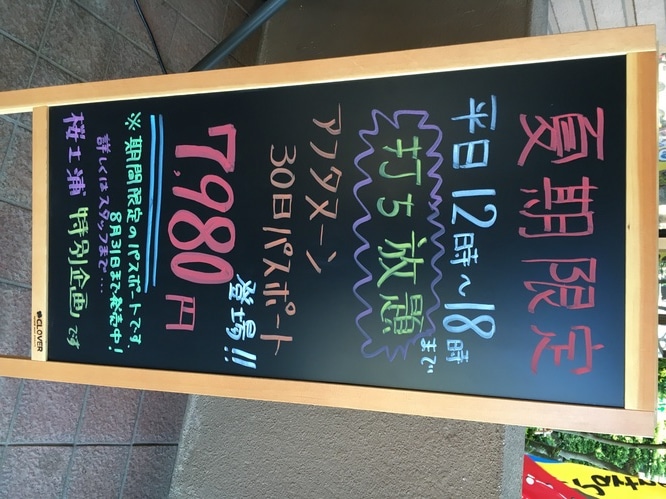 夏期限定
平日12時〜18時まで
打ち放題
アフタヌーン
30日パスポート
登場!!
7,980円
※期間限定のパスポートです。
8月31日まで発売中!
詳しくはスタッフまで…
桜土浦 特別企画です
CLOVER